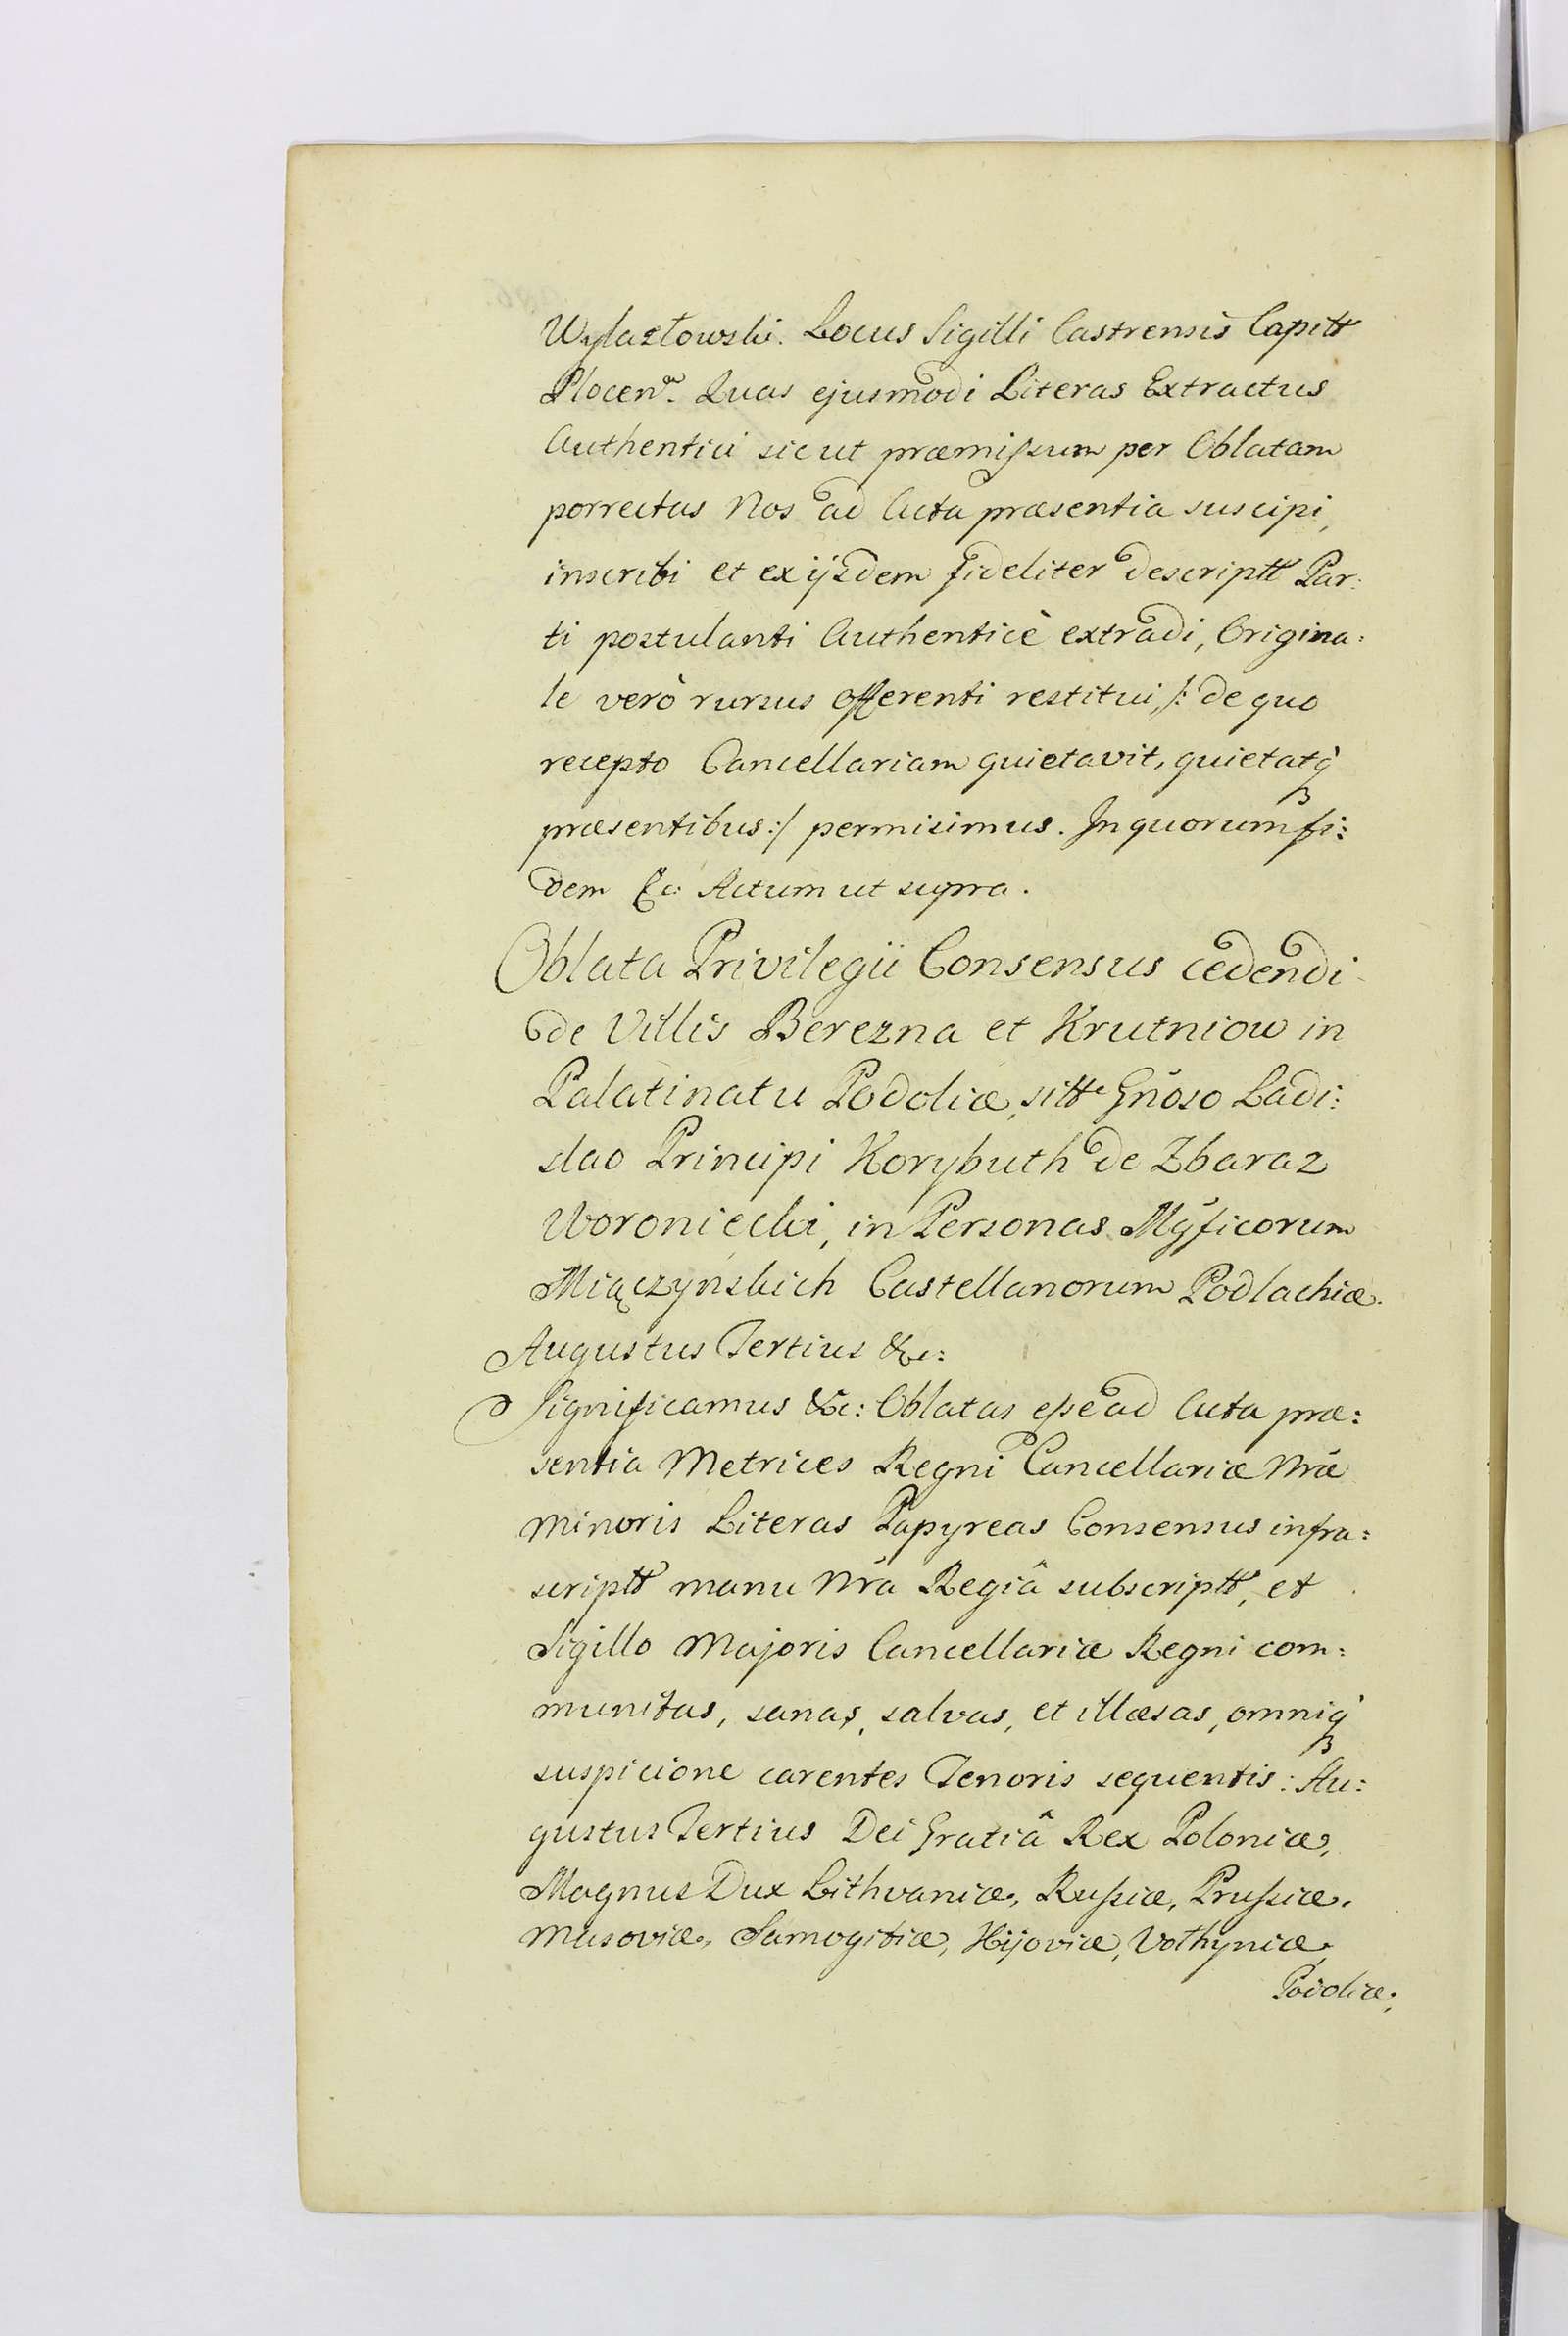 Wylazłowski. Locus Sigilli Castrensis Capitt
Plocen͠. Quas ejusmodi Literas Extractus
Authentici sicut præmissum per Oblatam
porrectas Nos ad Acta præsentia suscipi,
inscribi et ex ijsdem fideliter descriptt Par:
ti postulanti Authenticè extradi, Origina:
le verò rursus offerenti restitui, /: de quo
recepto Cancellariam quietavit, quietatq́
præsentibus :/ permisimus. In quorum fi:
dem &c: Actum ut supra.
Oblata Privilegii Consensus cedendi
de Villis Berezna et Krutniow in
Palatinatu Podoliæ, sitt Gñoso Ladi:
slao Principi Korybuth de Zbaraz
Woroniecki, in Personas Mgficorum
Miączynskich Castellanorum Podlachiæ.
Augustus Tertius &c:
Significamus &c: Oblatas esse ad Acta præ:
sentia Metrices Regni Cancellariæ Nræ
Minoris Literas Papyreas Consensus infra:
scriptt manu Nra Regiâ subscriptt, et
Sigillo Majoris Cancellariæ Regni com:
munitas, sanas, salvas, et illæsas, omniq́
suspicione carentes Tenoris sequentis: Au:
gustus Tertius Dei Gratiâ Rex Poloniæ,
Magnus Dux Lithvaniæ, Russiæ, Prussiæ,
Masoviæ, Samogitiæ, Kijoviæ, Volhyniæ,
Podoliæ,